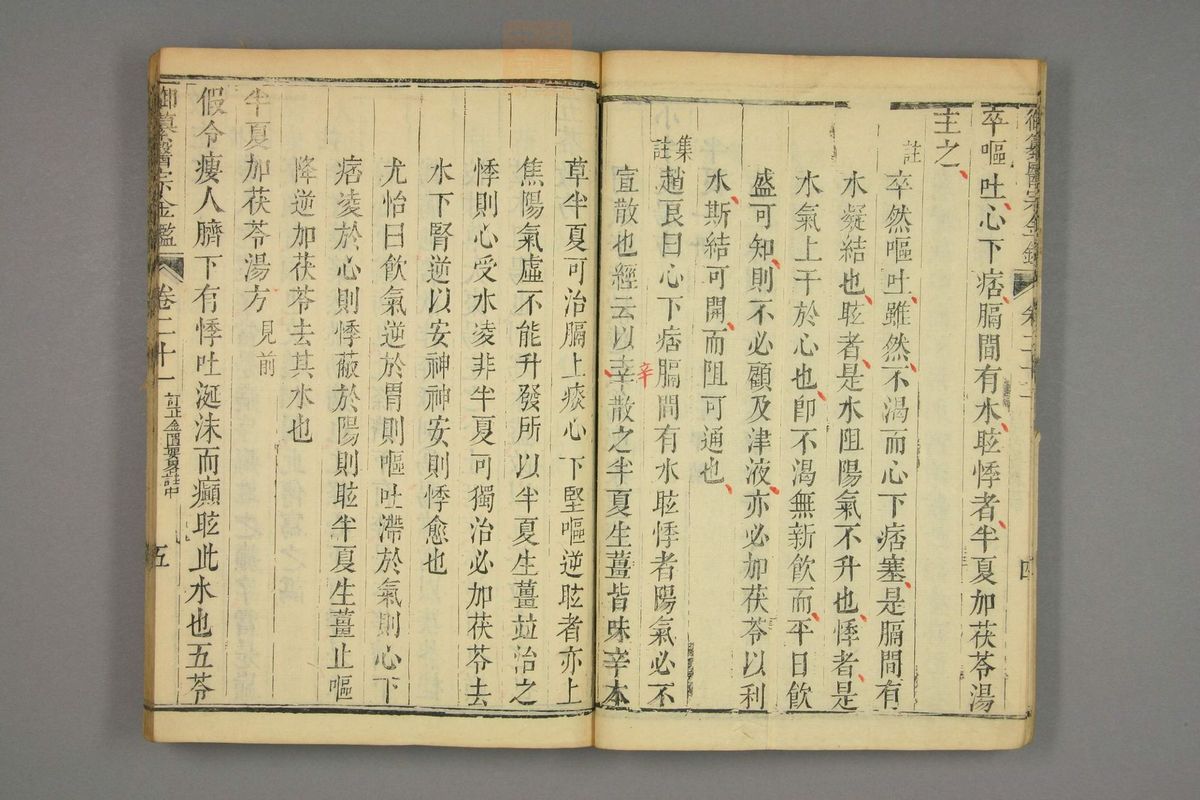 御纂醫宗金鑑 卷二十一 四
卒嘔吐心下痞膈間有水眩悸者半夏加茯苓湯
主之
註 卒然嘔吐雖然不渴而心下痞塞是膈間有
水凝結也眩者是水阻陽氣不升也悸者是
水氣上干於心也卽不渴無新飲而平日飲
盛可知則不必顧及津液亦必加茯苓以利
水斯結可開而阻可通也
集註 趙良曰心下痞膈間有水眩悸者陽氣必不
宣散也經云以辛散之半夏生薑皆味辛本
辛
草半夏可治膈上痰心下堅嘔逆眩者亦上
焦陽氣虛不能升發所以半夏生薑並治之
悸則心受水凌非半夏可獨治必加茯苓去
水下腎逆以安神神安則悸愈也
尤怡曰飲氣逆於胃則嘔吐滯於氣則心下
痞凌於心則悸蔽於陽則眩半夏生薑止嘔
降逆加茯苓去其水也
半夏加茯苓湯方 見前
假令瘦人臍下有悸吐涎沫而癲眩此水也五苓
御纂醫宗金鑑 卷二十一 訂正金匱要略註中 五